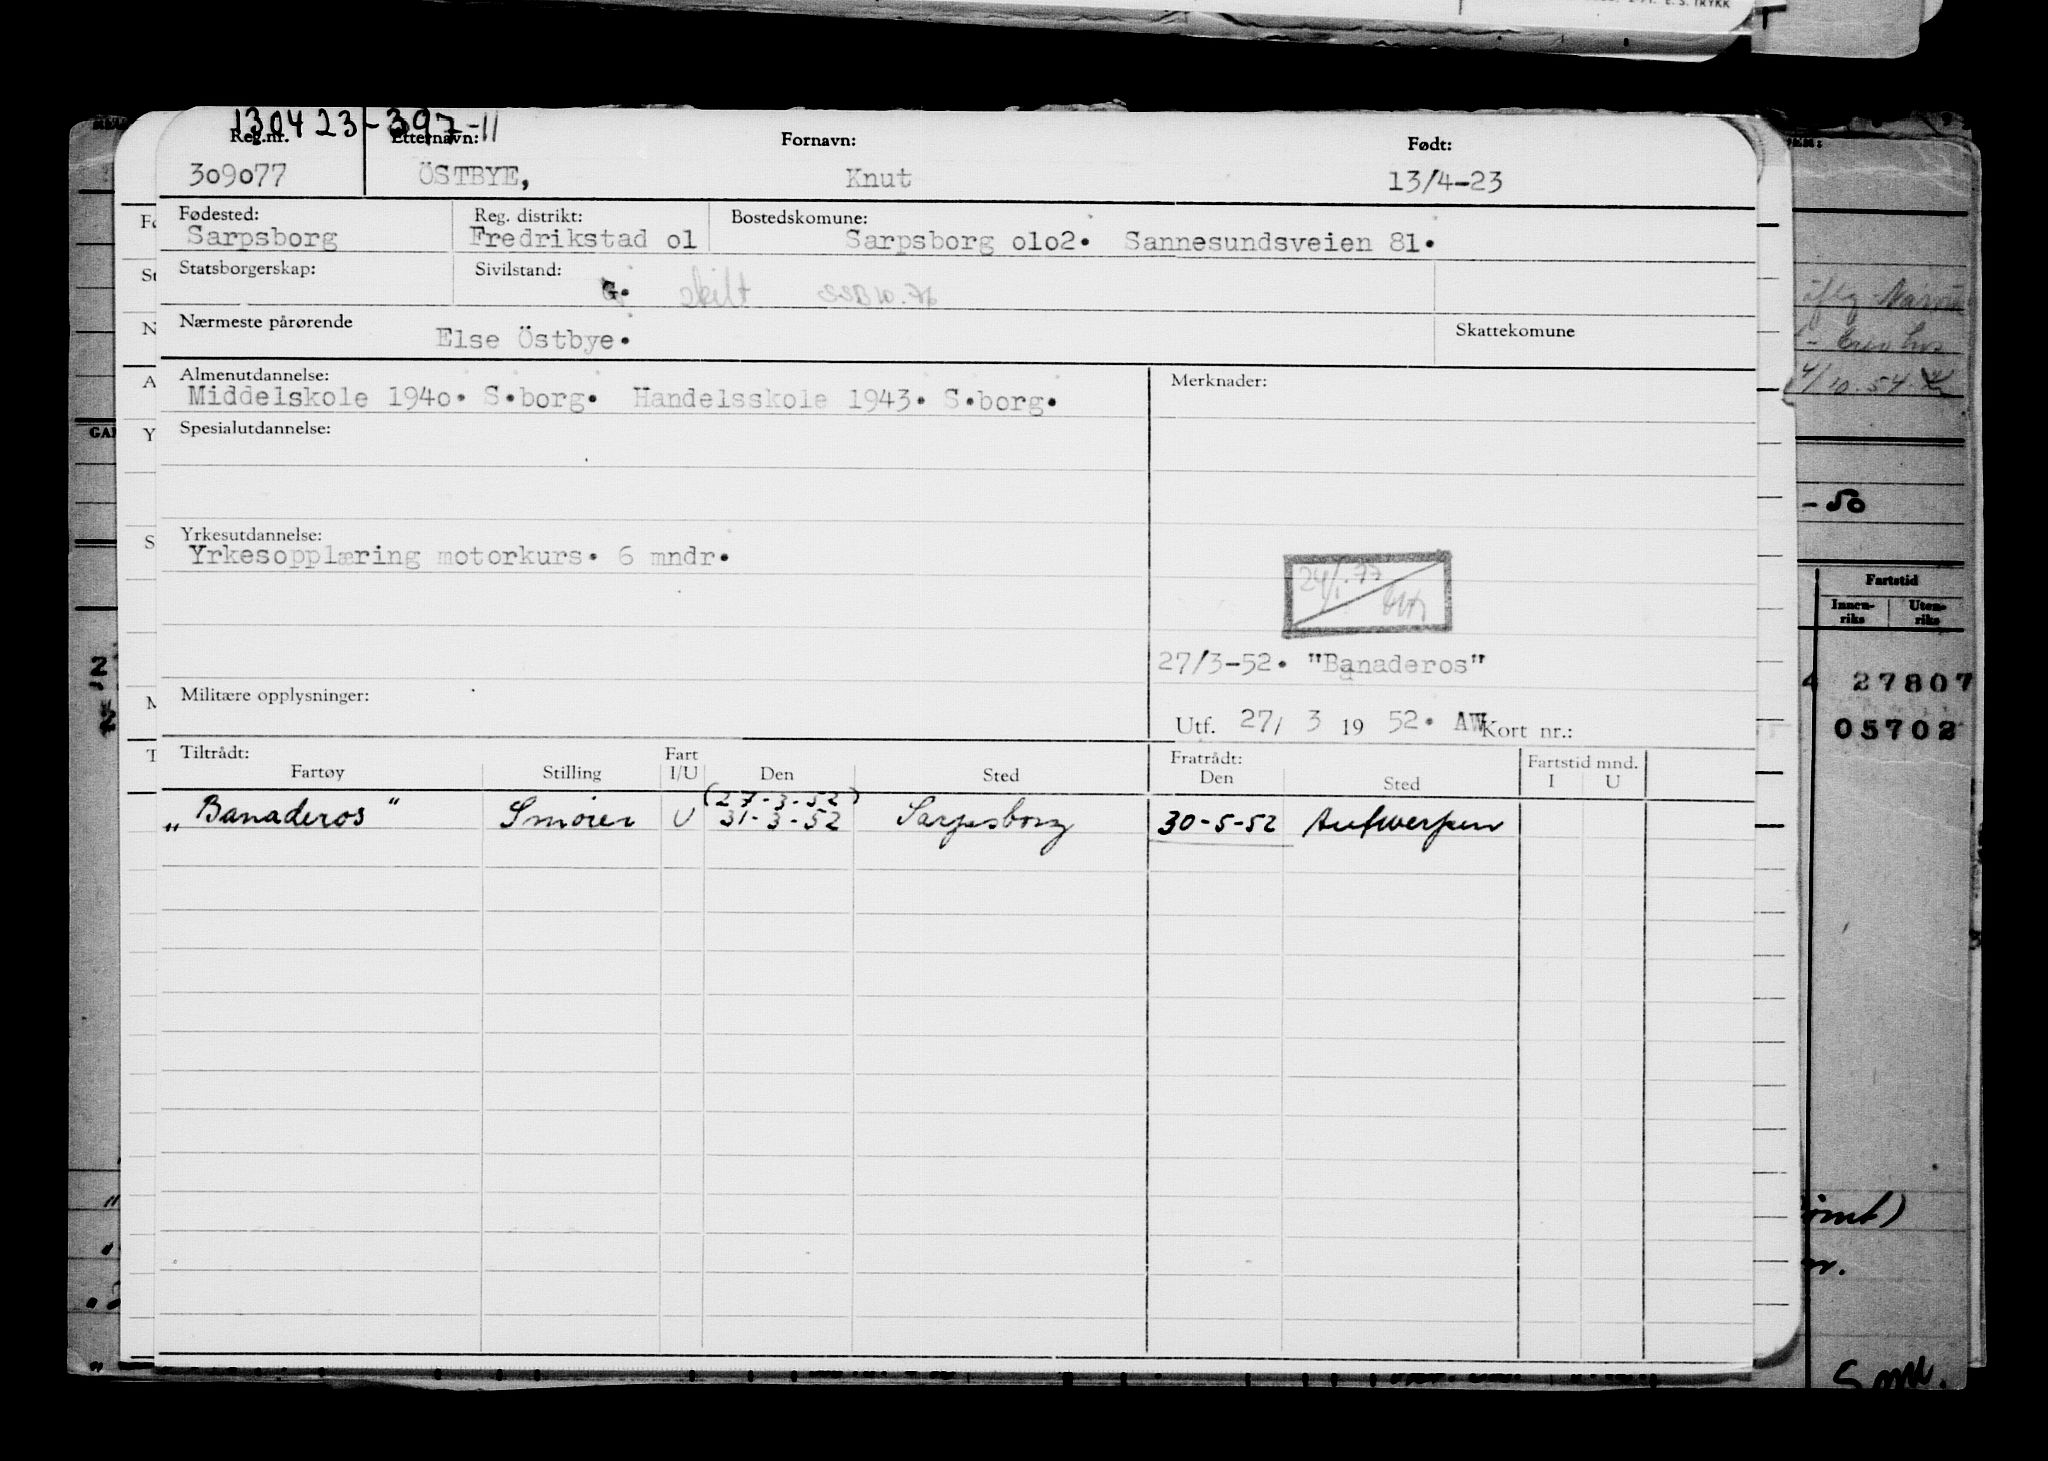 130423-397-11
Reg.nr. Etternavn: Fornavn: Født:
309077 ÖSTBYE, Knut 13/4-23
Fødested: Reg. distrikt: Bostedskomune:
Sarpsborg Fredrikstad o1 Sarpsborg o1o2. Sannesundsveien 81.
Statsborgerskap: Sivilstand:
G. skilt SSB 10.76
Nærmeste pårørende Else Östbye. Skattekomune
Almenutdannelse: Merknader:
Middelskole 194o. S.borg. Handelsskole 1943. S.borg.
Spesialutdannelse:
Yrkesutdannelse:
Yrkesopplæring motorkurs. 6 mndr.
24/1.77
27/3-52. "Banaderos"
Militære opplysninger:
Utf. 27/ 3 19 52. AW Kort nr.:
Tiltrådt: Fart Fratrådt: Fartstid mnd.
Fartøy Stilling I/U Den Sted Den Sted I U
(27-3-52)
„Banaderos" Smører U 31-3-52 Sarpsborg 30-5-52 Antwerpen
4/10.54
-50
Fartstid
Innen-riks Uten-riks
27807
05702